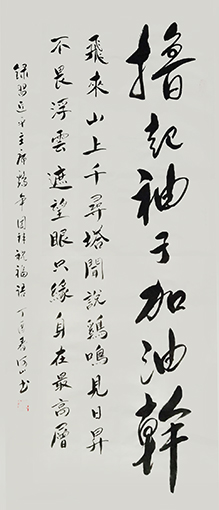 撸起袖子加油幹
飛來山上千尋塔聞說鷄鳴見日昇
不畏浮雲遮望眼只緣身在最高層
錄習近平主席鷄年團拜祝福語丁酉春河山書